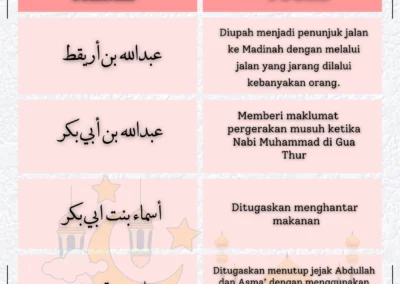 عبدالله بن أريقط
Diupah menjadi penunjuk jalan
ke Madinah dengan melalui
jalan yang jarang dilalui
kebanyakan orang.
عبدالله بن أبي بكر
Memberi maklumat
pergerakan musuh ketika
Nabi Muhammad di Gua
Thur
أسماء بنت ابي بكر
Ditugaskan menghantar
makanan
Ditugaskan menutup jejak Abdullah
dan Asma' dengan menggunakan